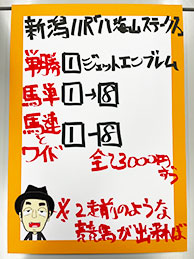 新潟11R「八海山ステークス」
単勝 1 ジェットエンブレム
馬単 1→8
馬連と 1-8
ワイド
全て3000円ずつ
※2走前のような
競馬が出来れば